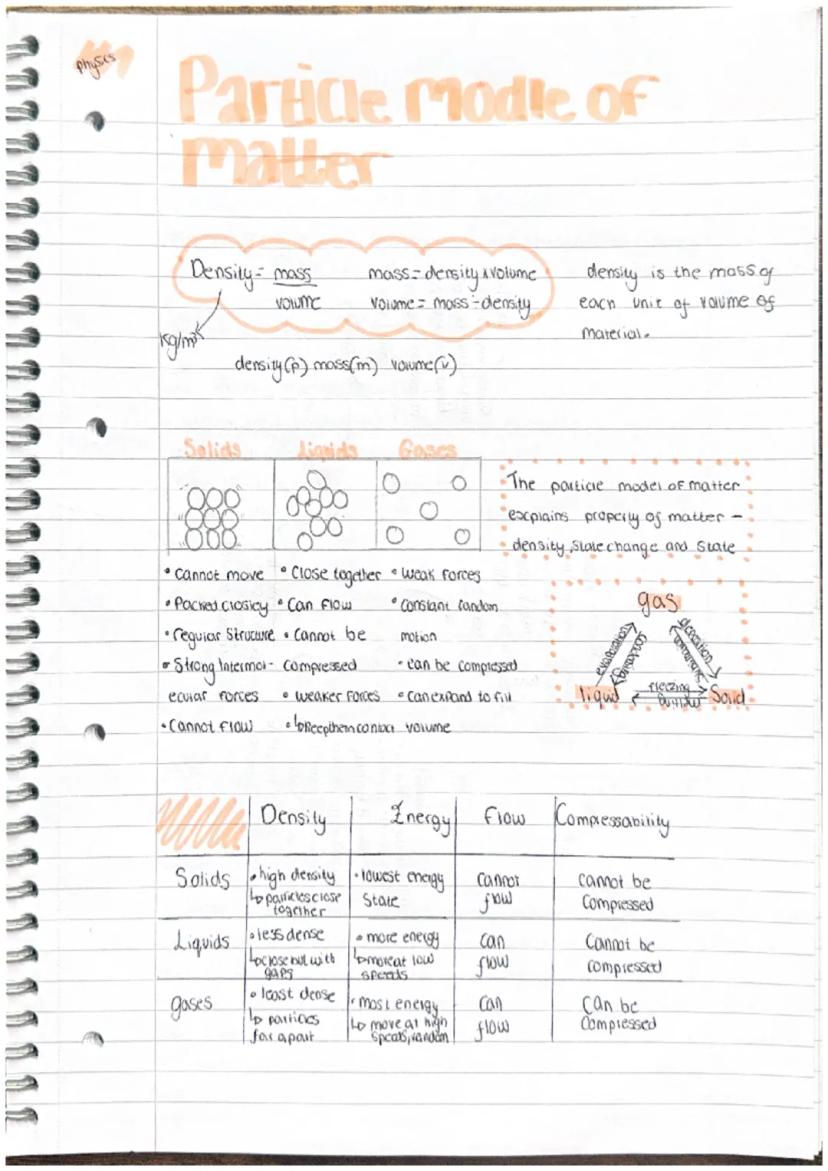 physics
Particle modle of
matter
Density = mass
volume
mass = density x volume
volume = mass ÷ density
kg/m³
density is the mass of
each unit of volume of
material.
density(p) mass(m) volume(v)
Solids Liquids Gases
The particle model of matter
explains property of matter –
density, state change and state
• Cannot move
• Packed closley
• regular Strucure
• Strong Intermol-
ecular forces
• Cannot flow
• Close together
• Can flow
• Cannot be
compressed
• weaker forces
• ↳ keep them contact
• weak forces
• Constant random
motion
• can be compressed
• Can expand to fill
volume
gas
evaporation
deposition
liquid
freezing
Solid
Density Energy Flow Compressability
Solids
• high density
↳ particles close
together
• lowest energy
State
cannot
flow
cannot be
compressed
Liquids
• less dense
↳ close but with
gaps
• more energy
↳ move at low
speeds
can
flow
Cannot be
compressed
gases
• least dense
↳ particles
far apart
• most energy
↳ move at high
speeds, random
can
flow
Can be
compressed